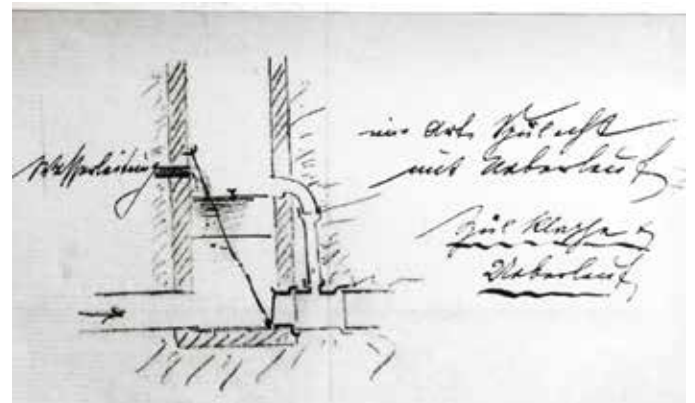 Wasserleitung
eine Art Spül
mit Ueberlauf
Spül Klappe &
Ueberlauf